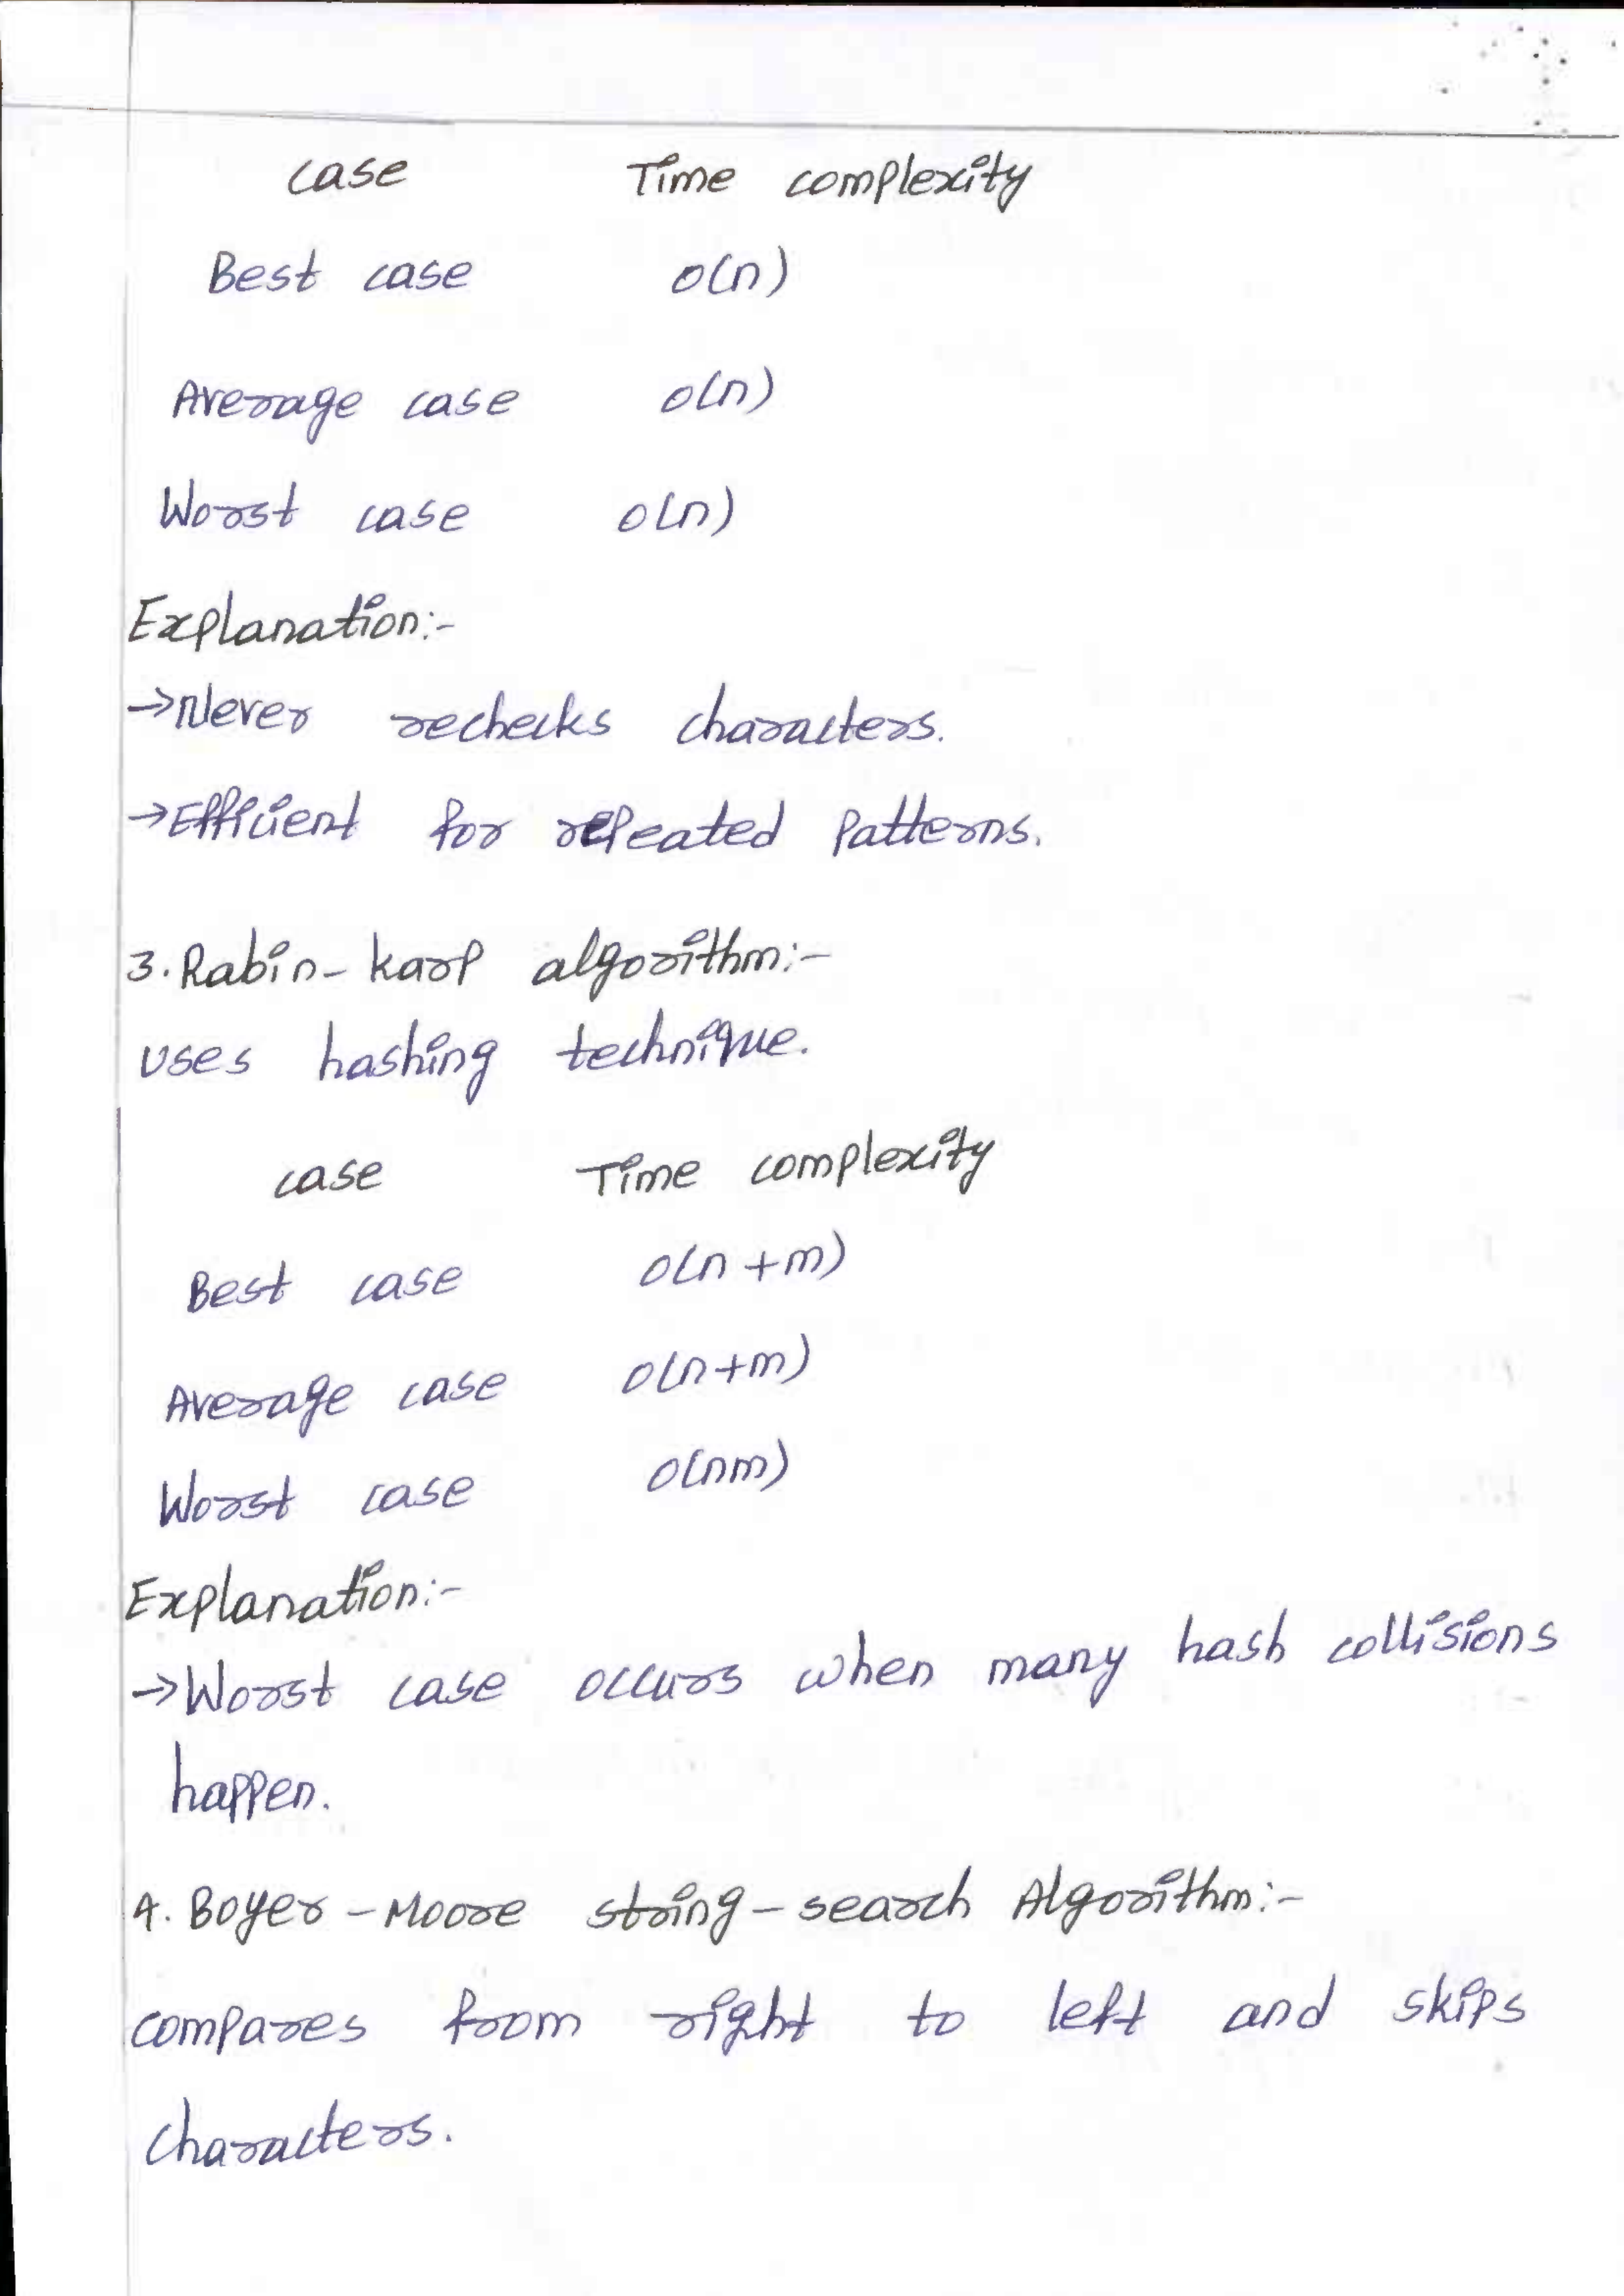 case Time complexity
Best case o(n)
Average case o(n)
Worst case o(n)
Explanation:-
→Never rechecks characters.
→Efficient for repeated patterns.
3. Rabin-karp algorithm:-
uses hashing technique.
case Time complexity
Best case o(n+m)
Average case o(n+m)
Worst case o(nm)
Explanation:-
→Worst case occurs when many hash collisions
happen.
4. Boyer-Moore string-search Algorithm:-
compares from right to left and skips
characters.